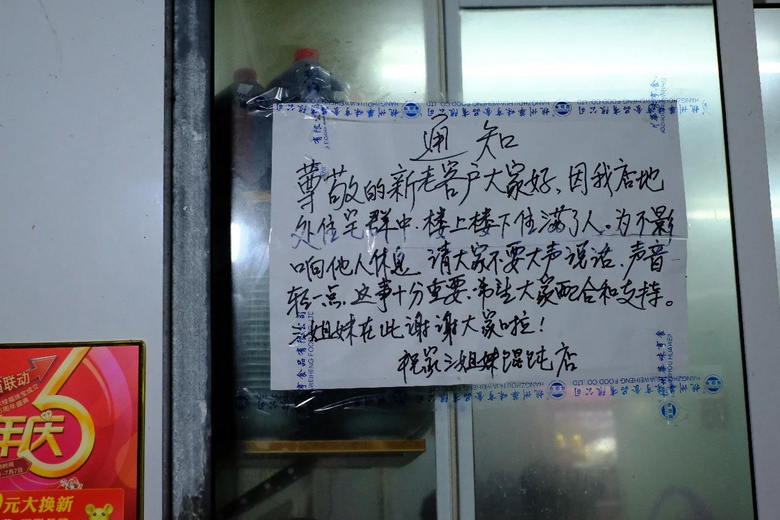 通知
尊敬的新老客户大家好,因我店地
处住宅群中.楼上楼下住满了人。为不影
响他人休息 请大家不要大声说话.声音
轻一点.这事十分重要.希望大家配合和支持。
三姐妹在此谢谢大家啦!
祝家三姐妹馄饨店
联动
年庆
-7月7日
元大换新